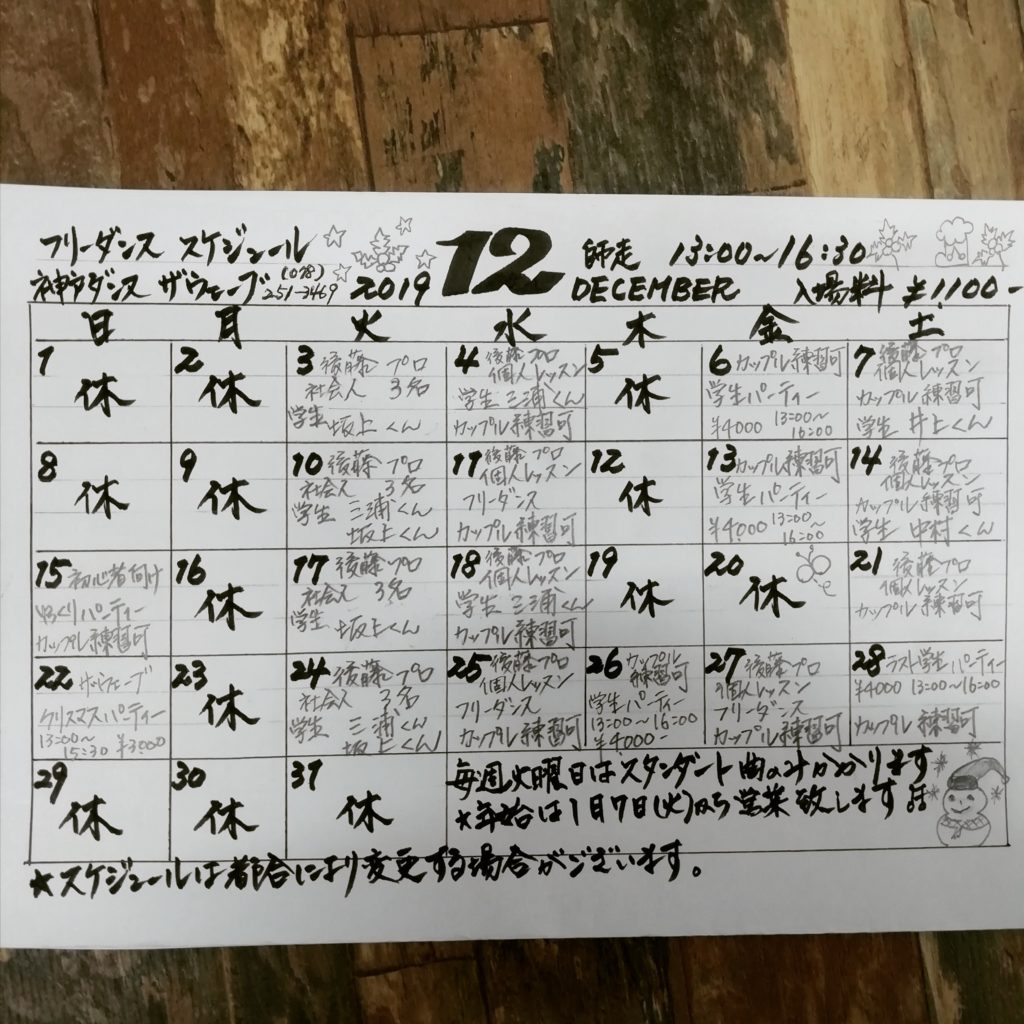 フリーダンス スケジュール
神戸ダンス ザウェーブ (078) 251-3469
2019 12 師走 DECEMBER
13:00〜16:30
入場料 ¥1,100-
日 月 火 水 木 金 土
1 休
2 休
3 後藤プロ
社会人 3名
学生 坂上くん
4 後藤プロ
個人レッスン
学生 三浦くん
カップル練習可
5 休
6 カップル練習可
学生パーティー
¥4000 13:00〜
16:00
7 後藤プロ
個人レッスン
カップル練習可
学生 井上くん
8 休
9 休
10 後藤プロ
社会人 3名
学生 三浦くん
坂上くん
11 後藤プロ
個人レッスン
フリーダンス
カップル練習可
12 休
13 カップル練習可
学生パーティー
¥4000 13:00〜
16:00
14 後藤プロ
個人レッスン
カップル練習可
学生 中村くん
15 初心者向け
ゆっくりパーティー
カップル練習可
16 休
17 後藤プロ
社会人 3名
学生 坂上くん
18 後藤プロ
個人レッスン
学生 三浦くん
カップル練習可
19 休
20 休
21 後藤プロ
個人レッスン
カップル練習可
22 ザウェーブ
クリスマスパーティー
13:00〜
15:30 ¥3000
23 休
24 後藤プロ
社会人 3名
学生 三浦くん
坂上くん
25 後藤プロ
個人レッスン
フリーダンス
カップル練習可
26 カップル
練習可
学生パーティー
13:00〜16:00
¥4000-
27 後藤プロ
個人レッスン
フリーダンス
カップル練習可
28 ラスト学生パーティー
¥4000 13:00〜16:00
カップル練習可
29 休
30 休
31 休
毎週火曜日はスタンダート曲のみかかります
*年始は1月7日(火)から営業致します
★スケジュールは都合により変更する場合がございます。